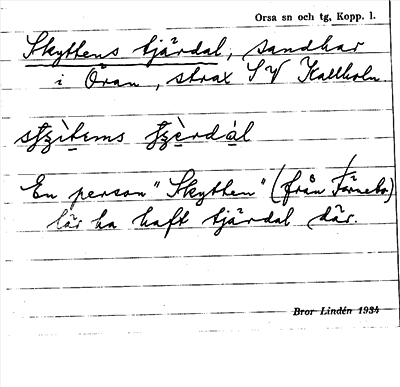 Orsa sn och tg, Kopp. l.
Skyttens tjärdal, sandhar
i Öran, strax S V Kallholn.
En person "Skytten" (från
lär ha haft tjärdal där.
Bror Lindén 1934